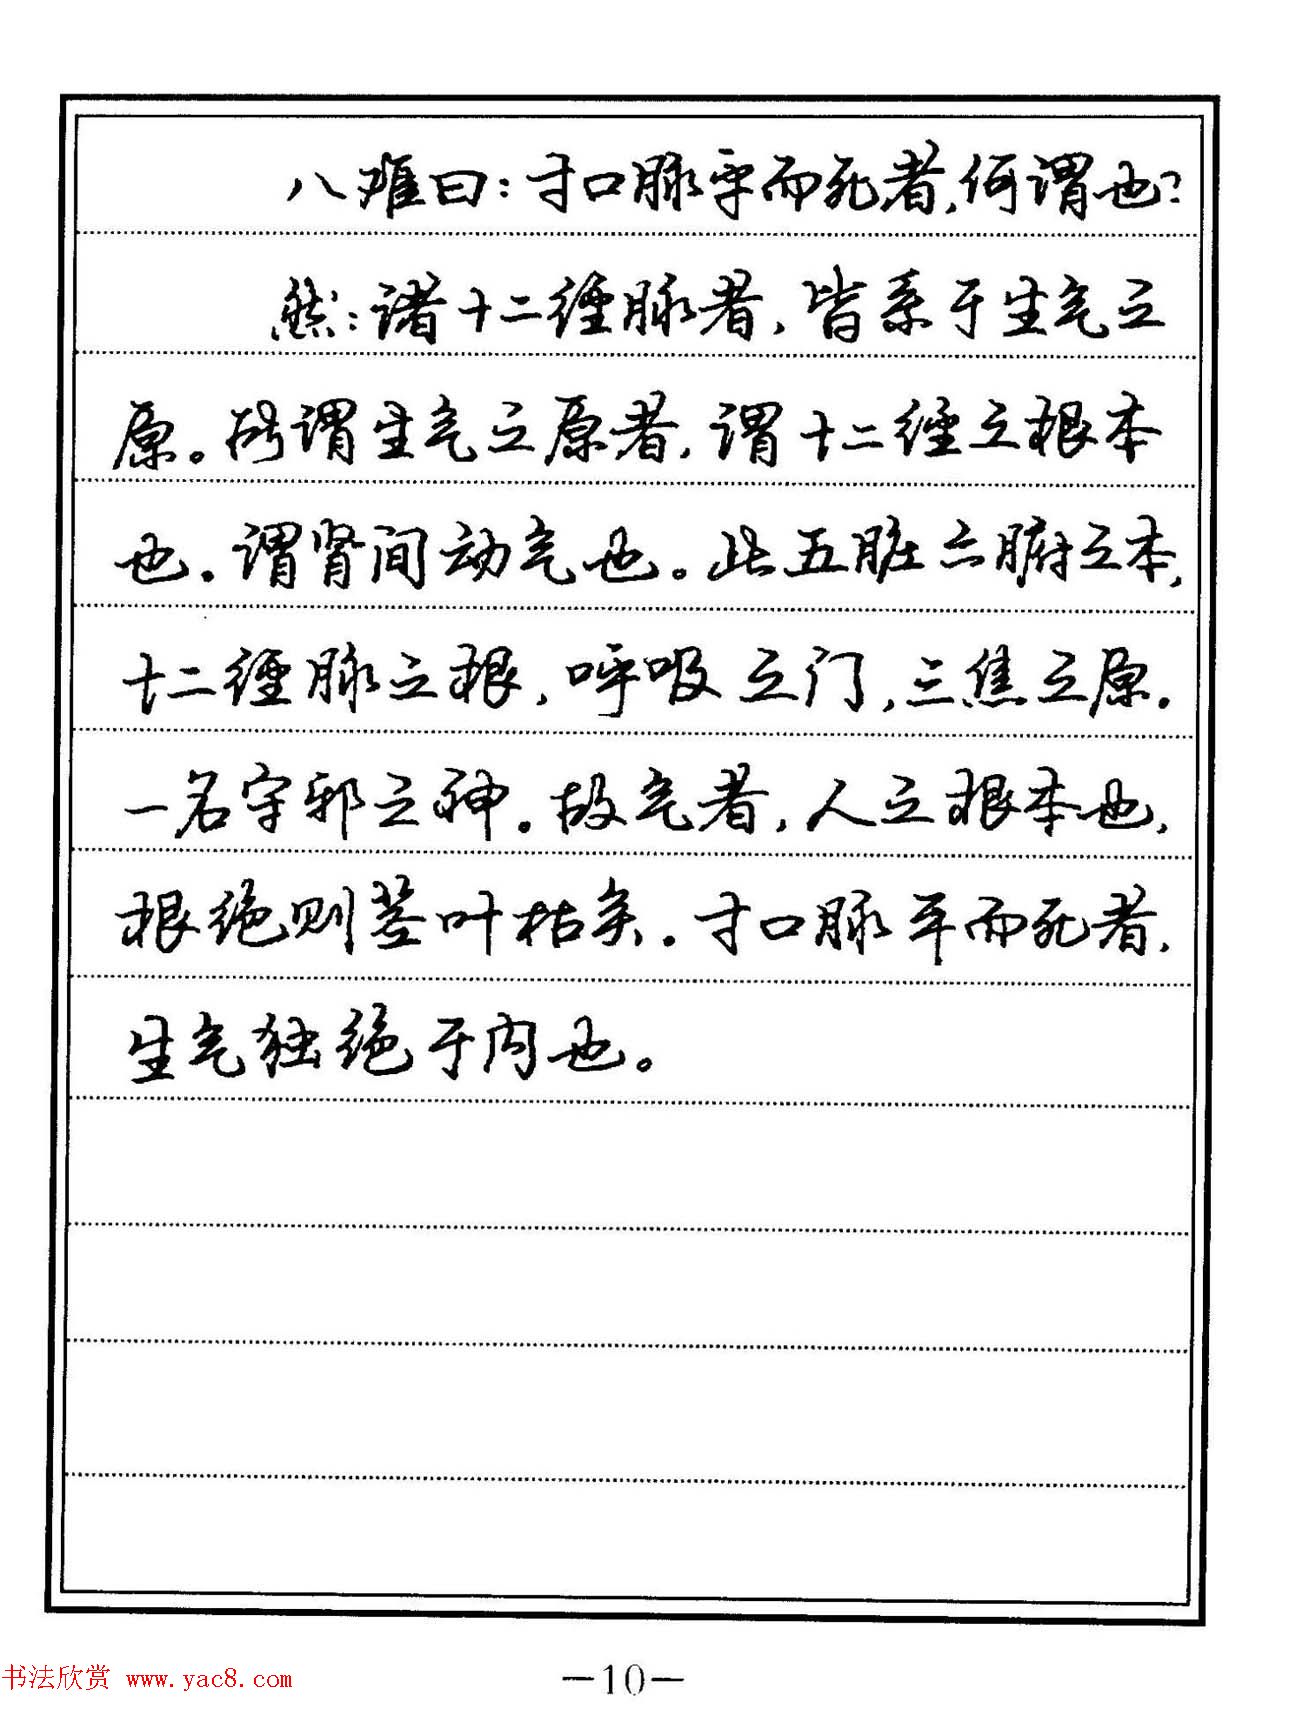 八难曰：寸口脉平而死者，何谓也？
然：诸十二经脉者，皆系于生气之
原。所谓生气之原者，谓十二经之根本
也。谓肾间动气也。此五脏六腑之本，
十二经脉之根，呼吸之门，三焦之原。
一名守邪之神。故气者，人之根本也，
根绝则茎叶枯矣。寸口脉平而死者，
生气独绝于内也。
书法欣赏 www.yac8.com
—10—